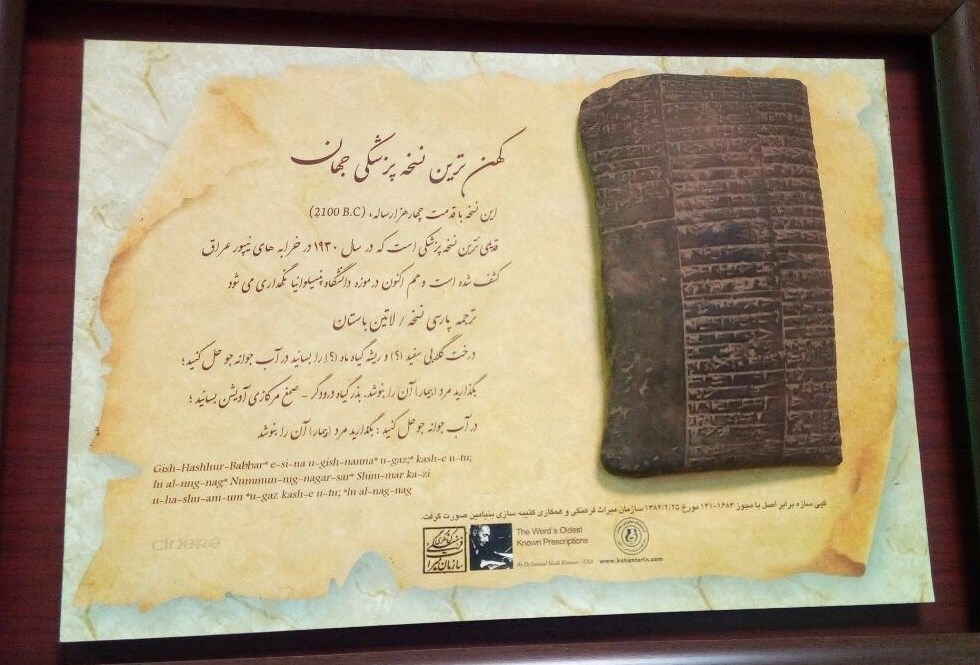 کهن ترین نسخه پزشکی جهان
این نسخه با قدمت چهار هزار ساله، (2100 B.C)
قدیمی ترین نسخه پزشکی است که در سال ۱۹۳۰ در خرابه های نیپور عراق
کشف شده است و هم اکنون در موزه دانشگاه پنسیلوانیا نگهداری می شود
ترجمه پارسی نسخه / لاتین باستان
درخت گلابی سفید (؟) و ریشه گیاه ماه (؟) را بسائید در آب جوانه جو حل کنید؛
بگذارید مرد (بیمار) آن را بنوشد، بذر گیاه درودگر - صمغ مرکازی آویشن بسائید ؛
در آب جوانه جو حل کنید ؛ بگذارید مرد (بیمار) آن را بنوشد
Gish-Hashhur-Babbar* e-si-na u-gish-nanna* u-gaz;* kash-e u-tu;
lu al-nng-nag* Nummun-nig-nagar-sar* Shim-mar ka-zi
u-ha-shu-am-um *u-gaz kash-e u-tu; *lu al-nag-nag
کپی سازه برابر اصل با مجوز ۱۶۸۳-۱۴۱ مورخ ۱۳۸۴/۲/۲۵ سازمان میراث فرهنگی و همکاری کتیبه سازی بنیامین صورت گرفت.
The Word's Oldest
Known Prescriptions
www.kohantarin.com
cinere